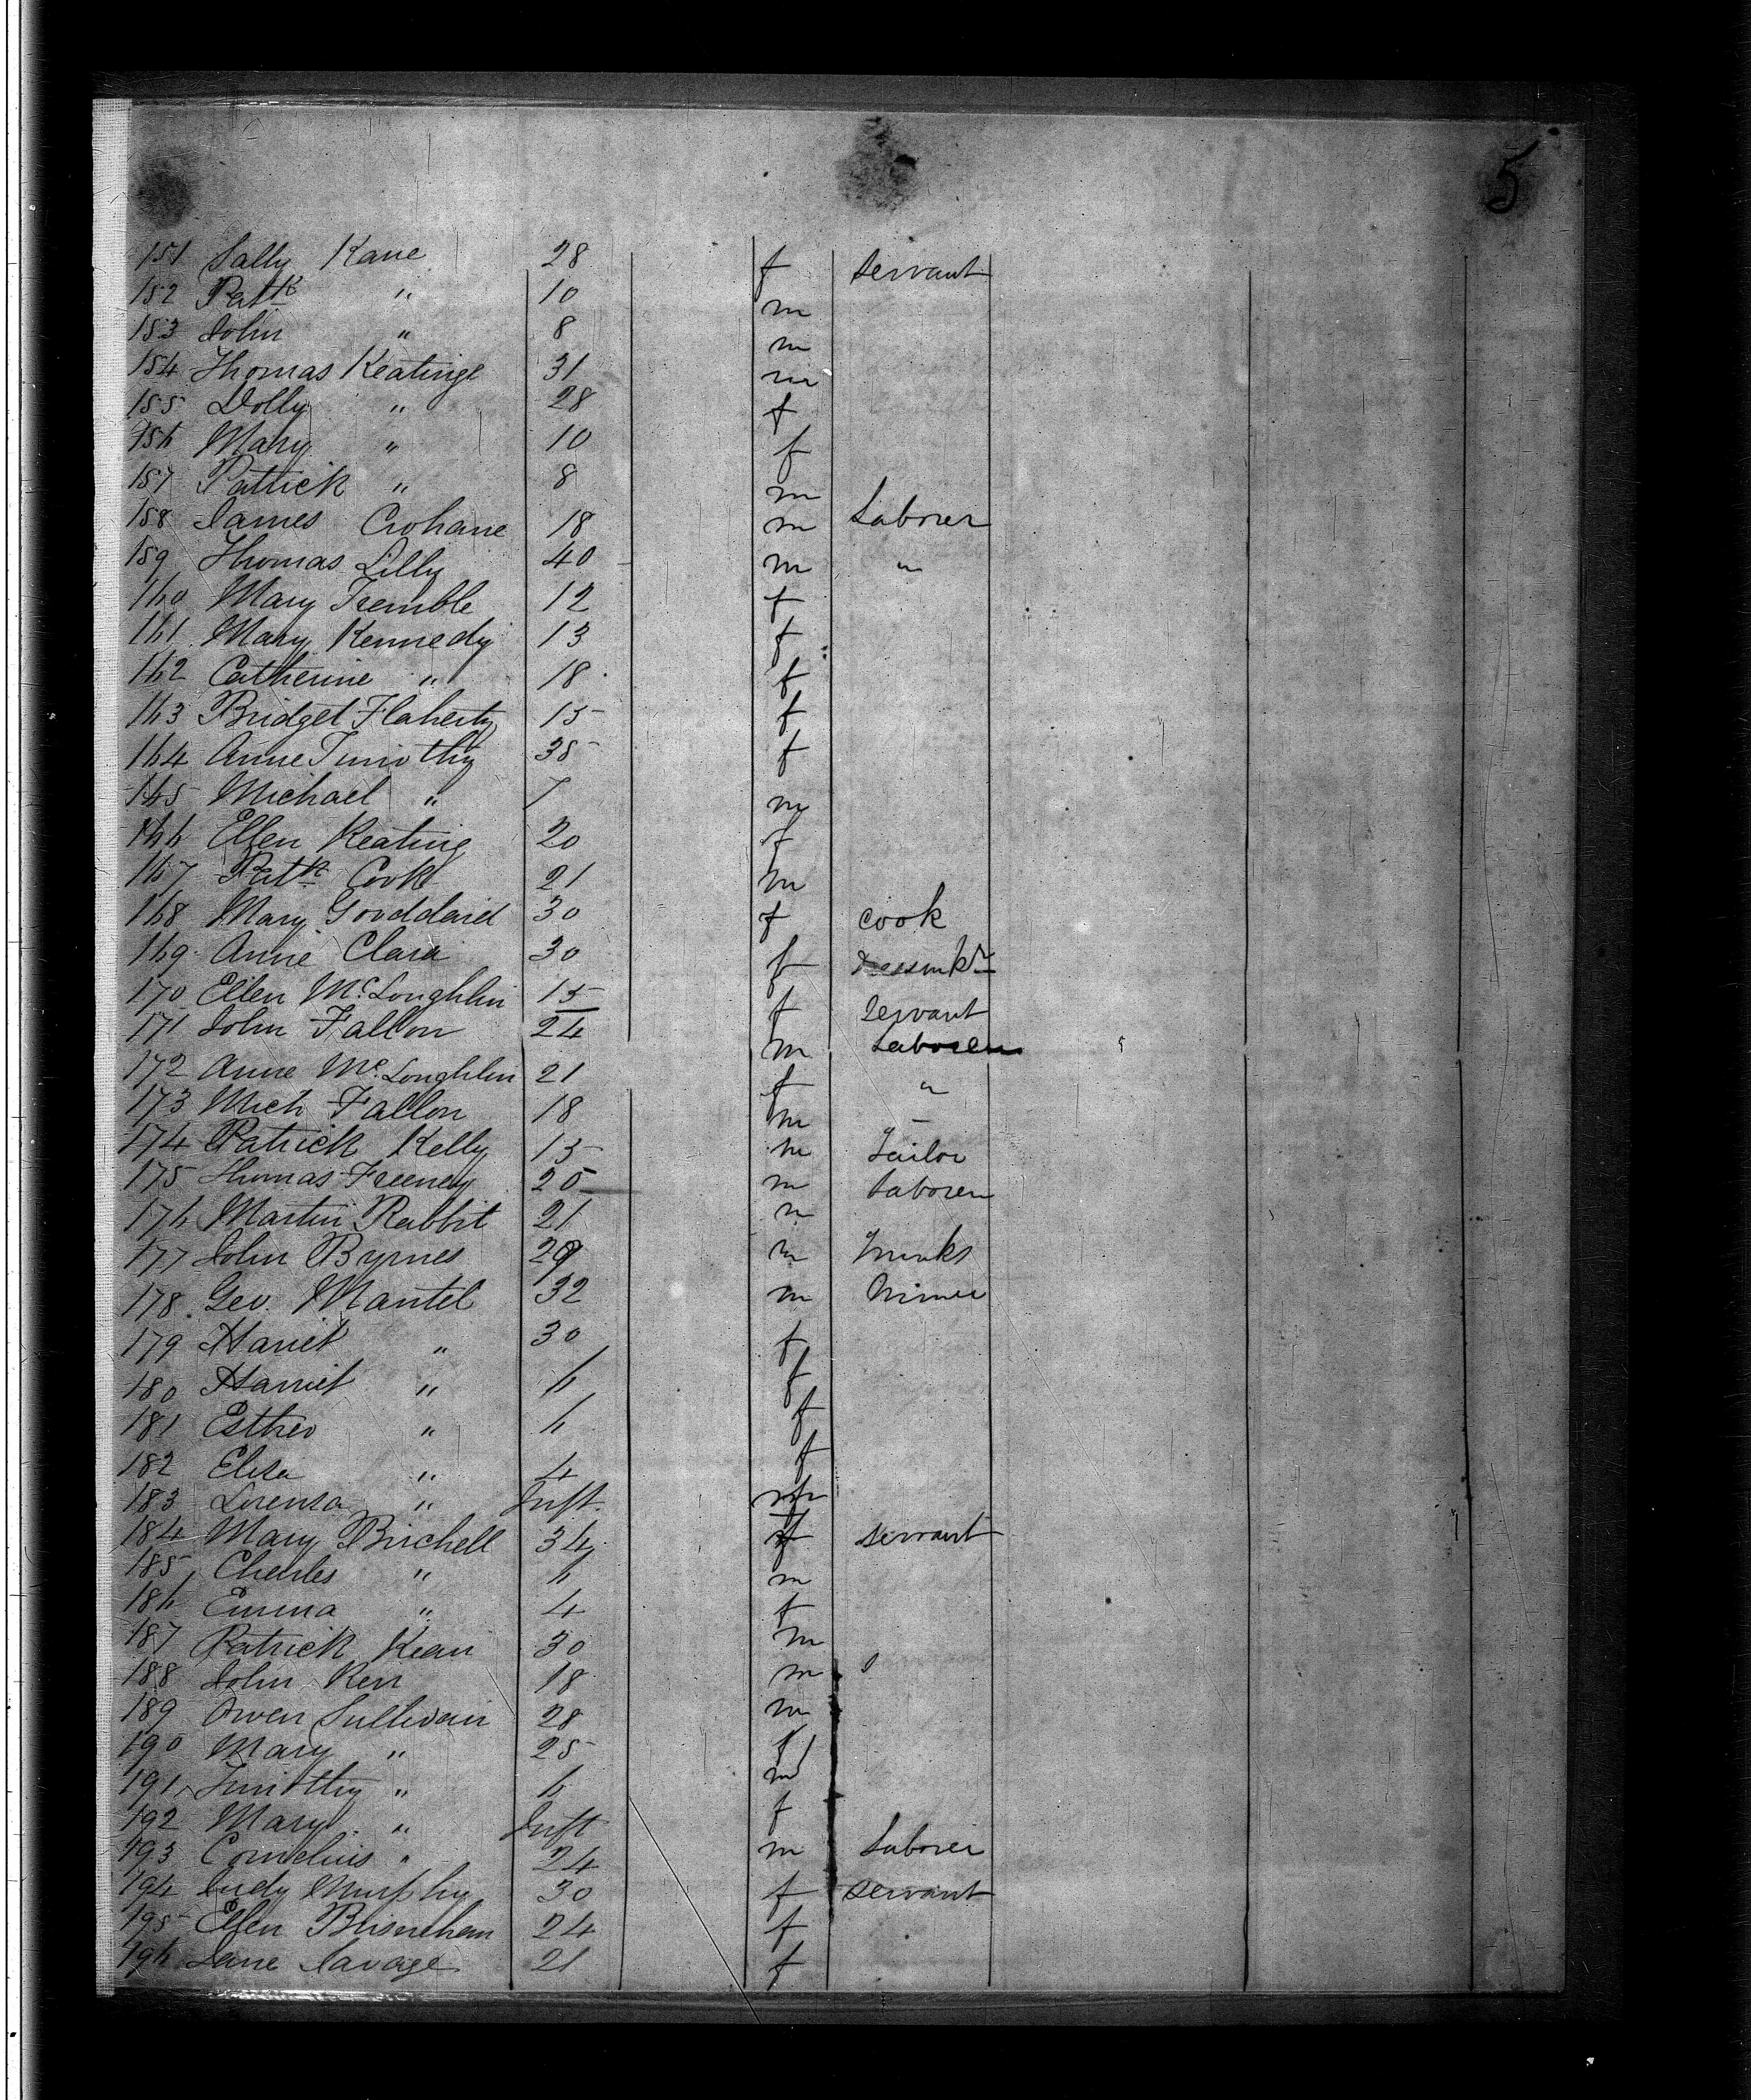 5
151 Sally Kane 28 f servant
152 Patk " 10 m
153 John " 8 m
154 Thomas Keatinge 31 m
155 Dolly " 28 f
156 Mary " 10 f
157 Patrick " 8 m
158 James Crohane 18 m Laborer
159 Thomas Lilly 40 m "
160 Mary Tremble 12 f
161 Mary Kennedy 13 f
162 Catherine " 18 f
163 Bridget Flaherty 15 f
164 Anne Timothy 35 f
165 Michael " 7 m
166 Ellen Keating 20 f
167 Patk Cook 21 m
168 Mary Goddard 30 f cook
169 Anne Clara 30 f
170 Ellen McLoughlin 15 f Servant
171 John Fallon 24 m Laborer
172 Anne McLoughlin 21 f "
173 Mich Fallon 18 m
174 Patrick Kelly 15 m Tailor
175 Thomas Freeney 25 m Laborer
176 Martin Rabbit 21 m
177 John Byrnes 29 m
178 Geo. Mantel 32 m
179 Harriet " 30 f
180 Harriet " 6 f
181 Esther " 6 f
182 Eliza " 4 f
183 Lorenza " Inft.
184 Mary Birchell 34 f servant
185 Charles " 6 m
186 Emma " 4 f
187 Patrick Kean 30 m
188 John Kerr 18 m
189 Owen Sullivan 28 m
190 Mary " 25 f
191 Timothy " 6 m
192 Mary " Inft f
193 Cornelius " 24 m Laborer
194 Judy Murphy 30 f servant
195 Ellen 24 f
196 Jane Savage 21 f